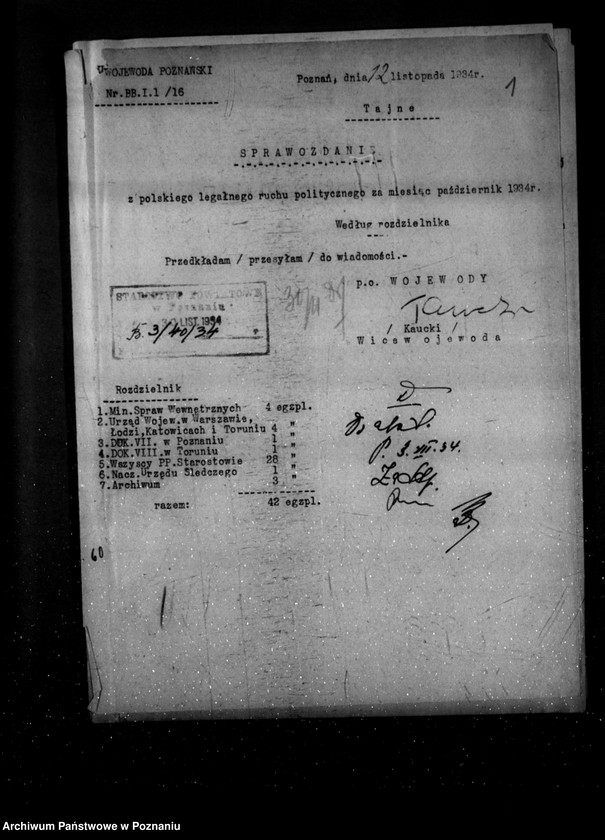 WOJEWODA POZNAŃSKI
Poznań, dnia 12 listopada 1934r.
Nr.BB.I.1 /16
1
Tajne
SPRAWOZDANIE
z polskiego legalnego ruchu politycznego za miesiąc październik 1934r.
Według rozdzielnika
Przedkładam / przesyłam / do wiadomości.-
p.o. WOJEWODY
STAROSTWO POWIATOWE
w Poznaniu
30 LIST. 1934
B. 3/40/34
/ Kaucki /
Wicewojewoda
Rozdzielnik
1.Min.Spraw Wewnętrznych 4 egzpl.
2.Urząd Wojew.w Warszawie,
Łodzi,Katowicach i Toruniu 4 "
3.DOK.VII. w Poznaniu 1 "
4.DOK.VIII.w Toruniu 1 "
5.Wszyscy PP.Starostowie 28 "
6.Nacz.Urzędu Śledczego 1 "
7.Archiwum 3 "
razem: 42 egzpl.
P. 3.XII.34.
60
Archiwum Państwowe w Poznaniu